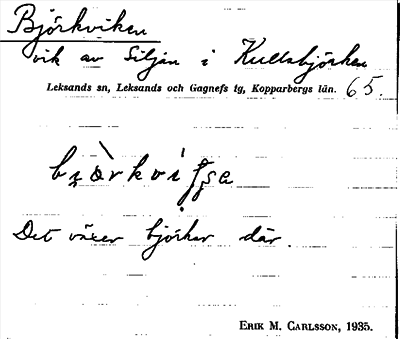 Björkviken
vik av Siljan i Kullsbjörken
Leksands sn, Leksands och Gagnefs tg, Kopparbergs län. 65.
Det växer björkar där.
ERIK M. CARLSSON, 1935.